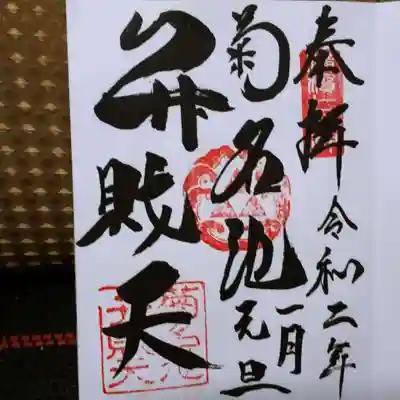 奉拝
令和二年
一月
元旦
菊名池
弁財天